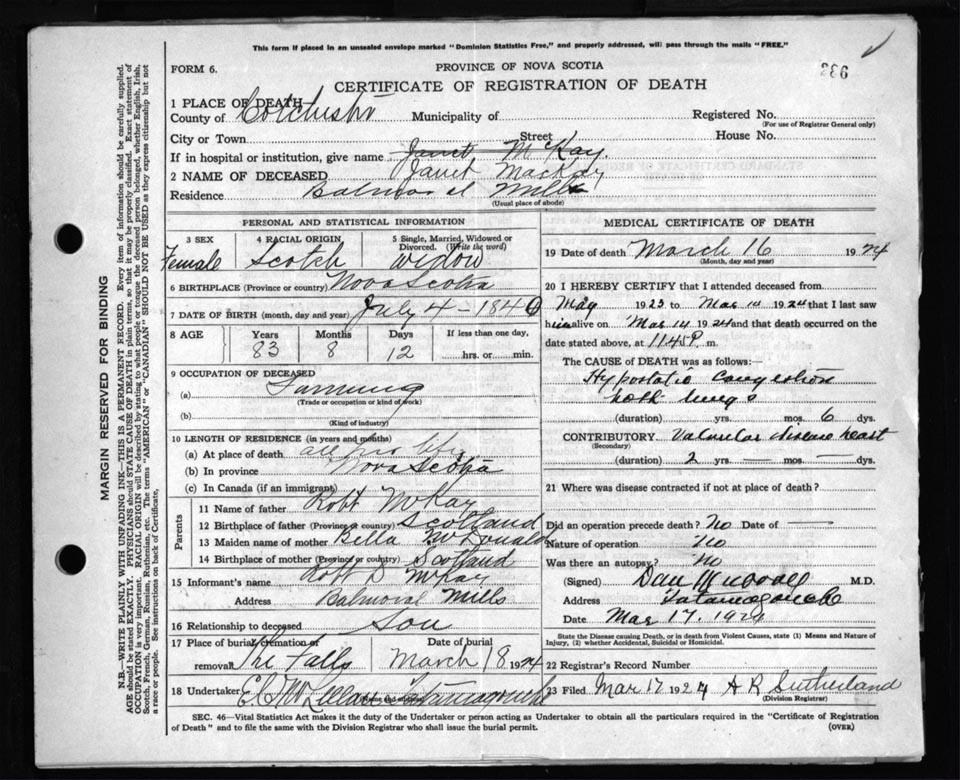 This form if placed in an unsealed envelope marked "Dominion Statistics Free," and properly addressed, will pass through the mails "FREE."
FORM 6.
PROVINCE OF NOVA SCOTIA
CERTIFICATE OF REGISTRATION OF DEATH
MARGIN RESERVED FOR BINDING
N.B.—WRITE PLAINLY WITH UNFADING INK—THIS IS A PERMANENT RECORD. Every item of information should be carefully supplied.
AGE should be stated EXACTLY. PHYSICIANS should STATE CAUSE OF DEATH in plain terms, so that it may be properly classified. Exact statement of
OCCUPATION is very important. RACIAL ORIGIN will be described by stating to what people or tongue the deceased person belonged, whether English, Irish,
Scotch, French, German, Russian, Ruthenian, etc. The terms "AMERICAN" or "CANADIAN" SHOULD NOT BE USED as they express citizenship but not
a race or people. See instructions on back of Certificate.
1 PLACE OF DEATH
County of Colchester Municipality of Registered No.
(For use of Registrar General only)
City or Town Street House No.
If in hospital or institution, give name Janet McKay.
2 NAME OF DECEASED Janet MacKay
Residence Balmoral Mills
(Usual place of abode)
PERSONAL AND STATISTICAL INFORMATION
3 SEX 4 RACIAL ORIGIN 5 Single, Married, Widowed or Divorced. (Write the word)
Female Scotch widow
6 BIRTHPLACE (Province or country) Nova Scotia
7 DATE OF BIRTH (month, day and year) July 4 - 1840
8 AGE Years Months Days If less than one day,
83 8 12 hrs. or min.
9 OCCUPATION OF DECEASED
(a) Farming
(Trade or occupation or kind of work)
(b)
(Kind of industry)
10 LENGTH OF RESIDENCE (in years and months)
(a) At place of death all life
(b) In province Nova Scotia
(c) In Canada (if an immigrant)
Parents
11 Name of father Robt McKay
12 Birthplace of father (Province or country) Scotland
13 Maiden name of mother Bella McDonald
14 Birthplace of mother (Province or country) Scotland
15 Informant's name Robt D McKay
Address Balmoral Mills
16 Relationship to deceased Son
17 Place of burial, cremation or removal The Falls Date of burial March 18 1924
18 Undertaker Tatamagouche
MEDICAL CERTIFICATE OF DEATH
19 Date of death March 16 1924
(Month, day and year)
20 I HEREBY CERTIFY that I attended deceased from
May 1923 to Mar 14 1924 that I last saw
alive on Mar 14 1924 and that death occurred on the
date stated above, at 1145 P. m.
The CAUSE of DEATH was as follows:
Hypostatic Congestion
both lungs
(duration) yrs. mos. 6 dys.
CONTRIBUTORY Valvular disease heart
(Secondary)
(duration) 2 yrs. — mos. — dys.
21 Where was disease contracted if not at place of death?
Did an operation precede death? No Date of —
Nature of operation No
Was there an autopsy? No
(Signed) Dan Murdoch M.D.
Address Tatamagouche
Date Mar 17. 1924
State the Disease causing Death, or in death from Violent Causes, state (1) Means and Nature of Injury, (2) whether Accidental, Suicidal or Homicidal.
22 Registrar's Record Number
23 Filed Mar 17 1924 A R Sutherland
(Division Registrar)
SEC. 46—Vital Statistics Act makes it the duty of the Undertaker or person acting as Undertaker to obtain all the particulars required in the "Certificate of Registration
of Death" and to file the same with the Division Registrar who shall issue the burial permit. (OVER)